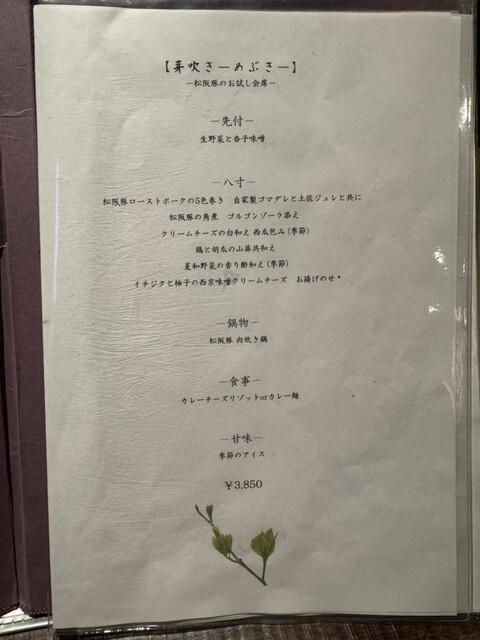 【芽吹き―めぶき―】
―松阪豚のお試し会席―
―先付―
生野菜と杏子味噌
―八寸―
松阪豚ローストポークの5色巻き 自家製ゴマダレと土佐ジュレと共に
松阪豚の角煮 ゴルゴンゾーラ添え
クリームチーズの白和え 西瓜包み(季節)
鶏と胡瓜の山葵共和え
夏和野菜の香り酢和え(季節)
イチジクと柚子の西京味噌クリームチーズ お揚げのせ*
―鍋物―
松阪豚 肉炊き鍋
―食事―
カレーチーズリゾットorカレー麺
―甘味―
季節のアイス
￥3,850